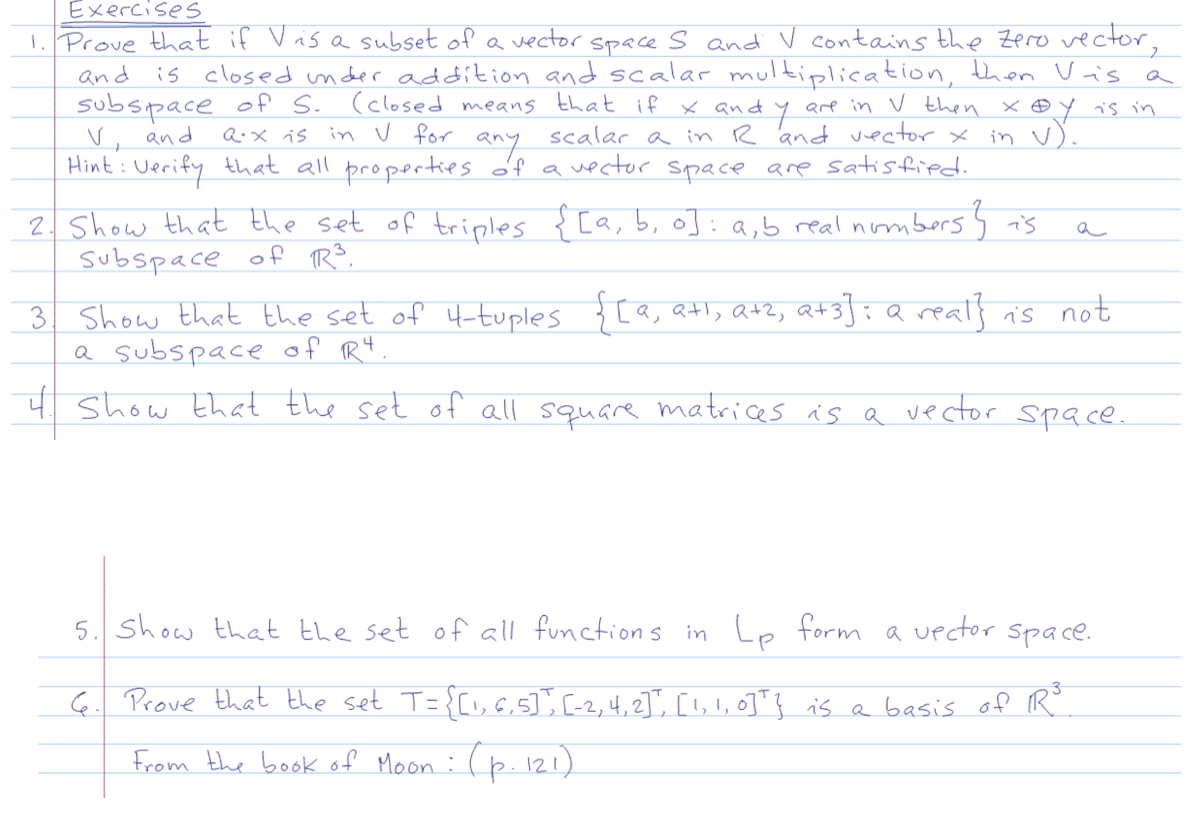 Exercises
1. Prove that if V is a subset of a vector space S and V contains the zero vector,
and is closed under addition and scalar multiplication, then V is a
subspace of S. (closed means that if x and y are in V then x ⊕ y is in
V, and a·x is in V for any scalar a in R and vector x in V).
Hint: Verify that all properties of a vector space are satisfied.
2. Show that the set of triples {[a, b, 0]: a,b real numbers} is a
subspace of ℝ³.
3. Show that the set of 4-tuples {[a, a+1, a+2, a+3]: a real} is not
a subspace of ℝ⁴.
4. Show that the set of all square matrices is a vector space.
5. Show that the set of all functions in Lp form a vector space.
6. Prove that the set T={[1,6,5]ᵀ, [-2,4,2]ᵀ, [1,1,0]ᵀ} is a basis of ℝ³.
From the book of Moon: (p. 121)